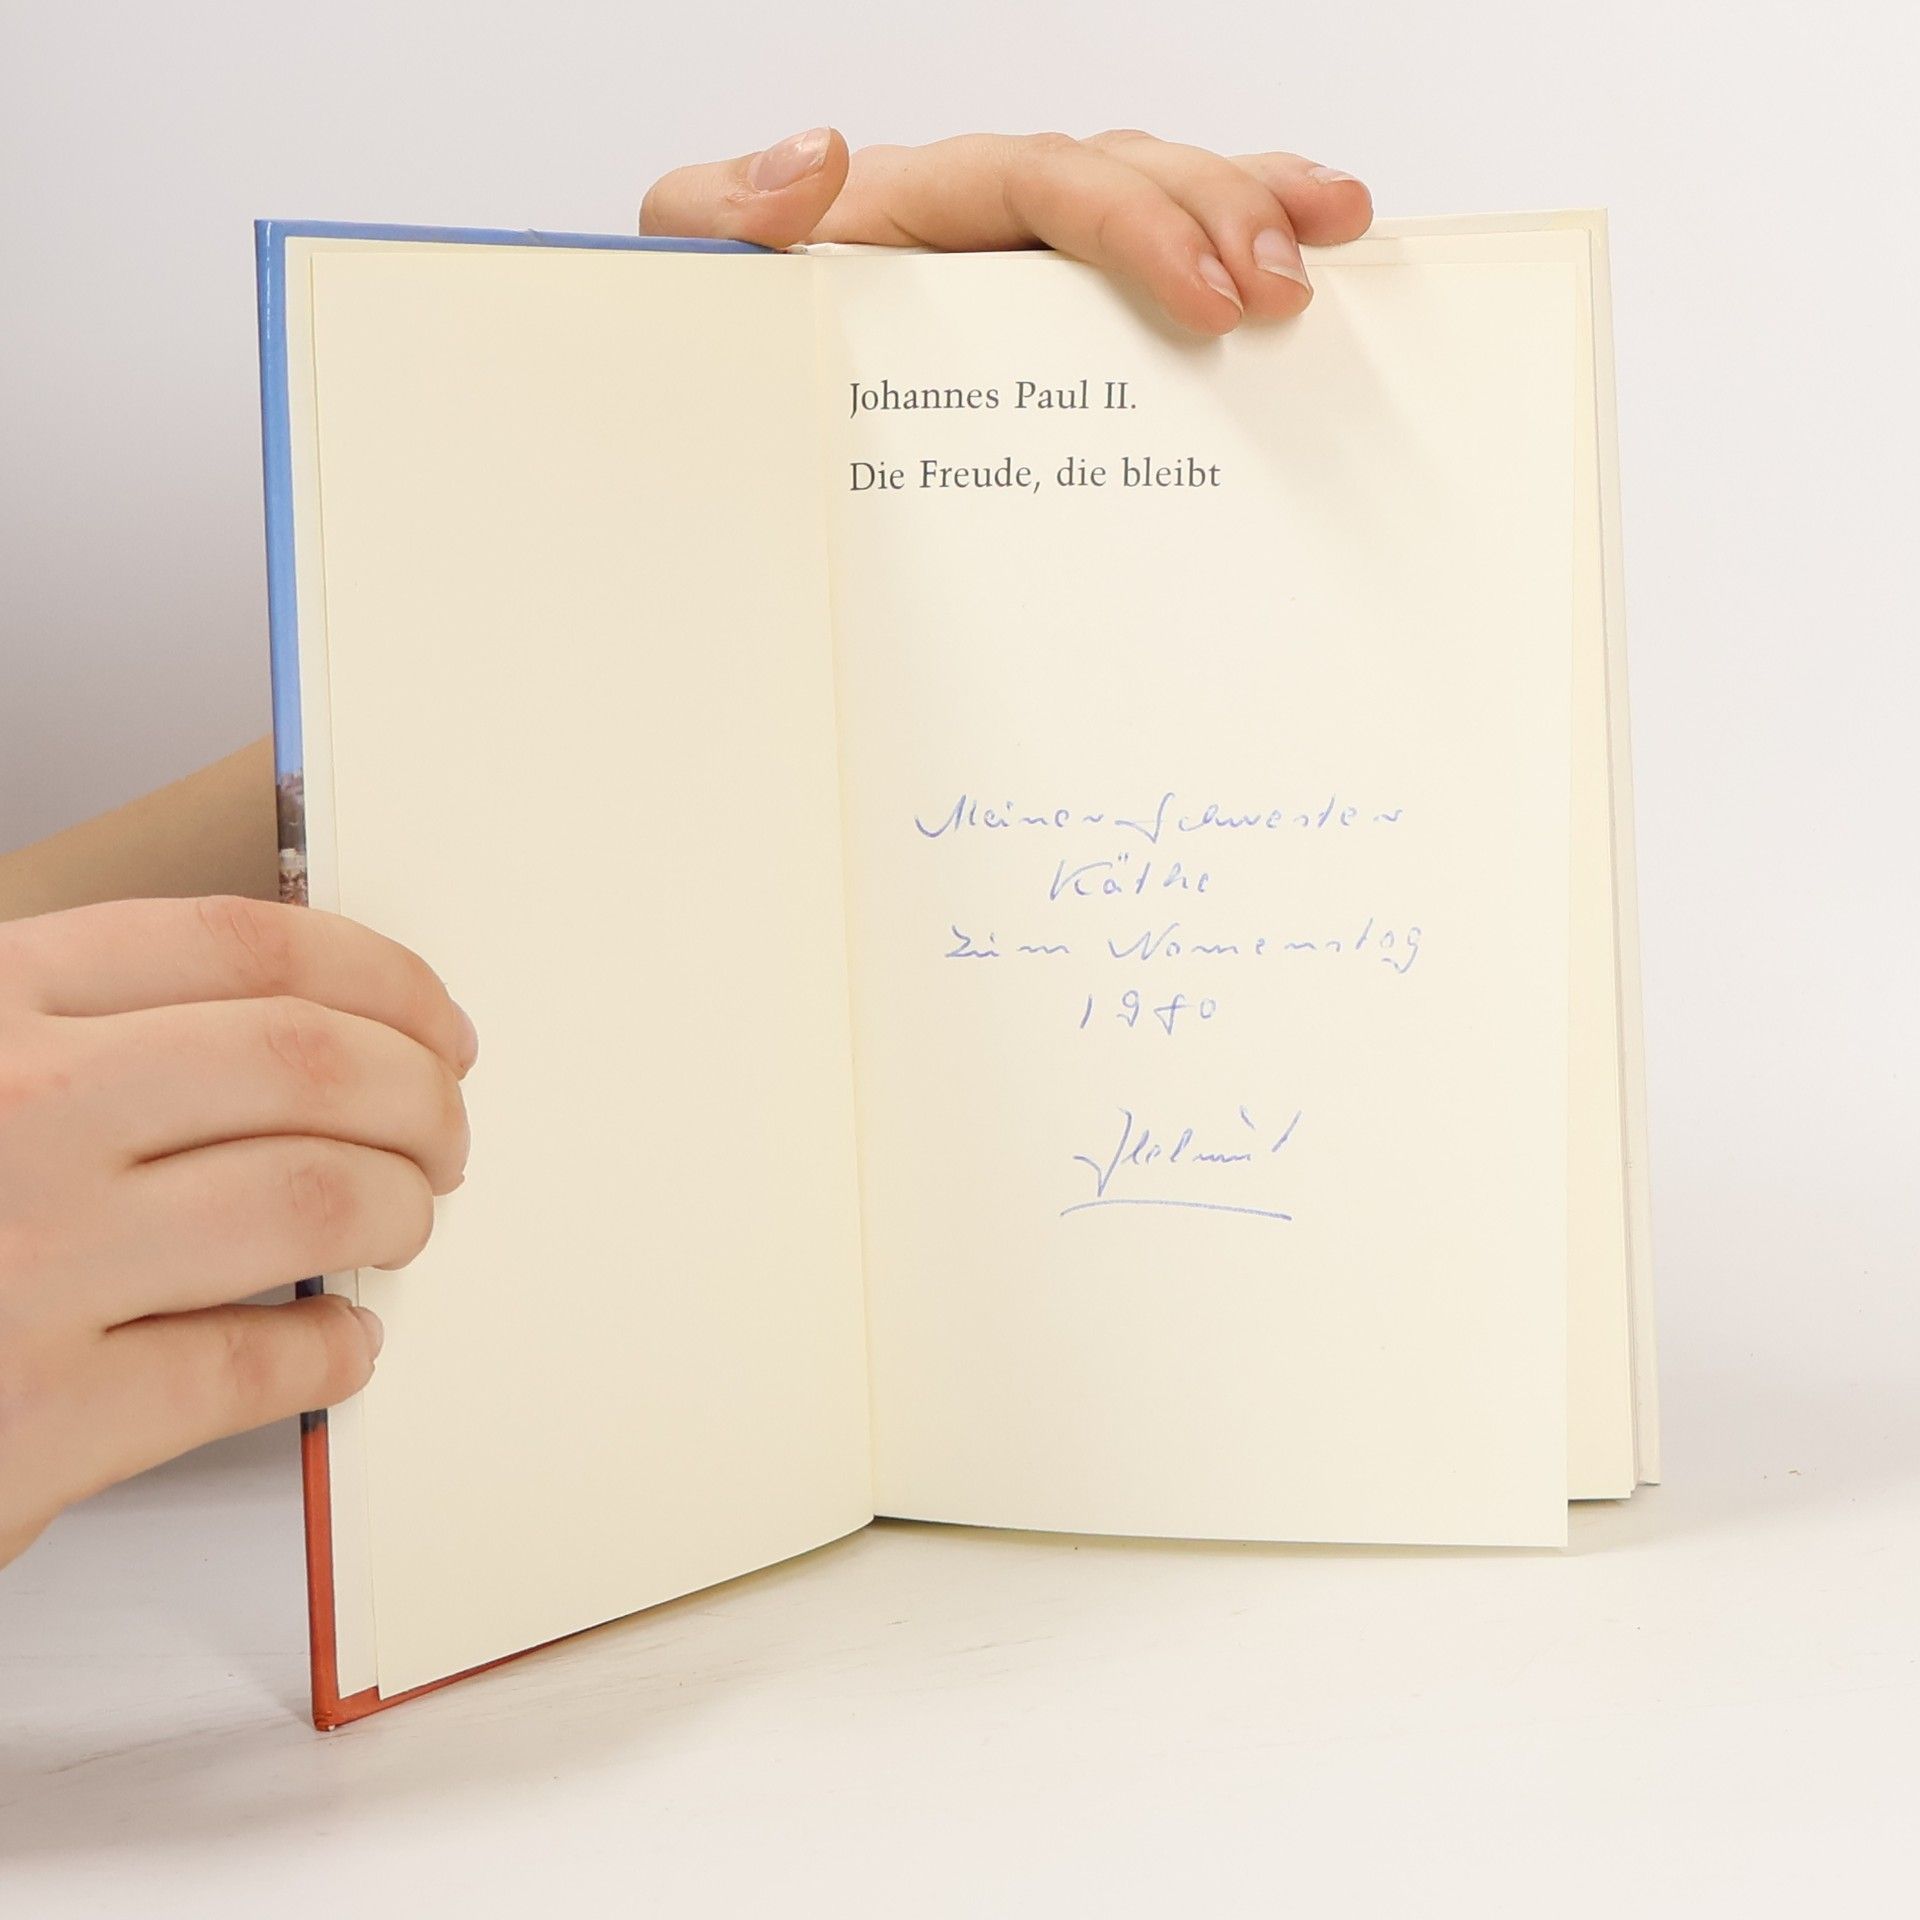 Johannes Paul II.
Die Freude, die bleibt
Meiner Schwester
Käthe
zum Namenstag
1980
Helmut